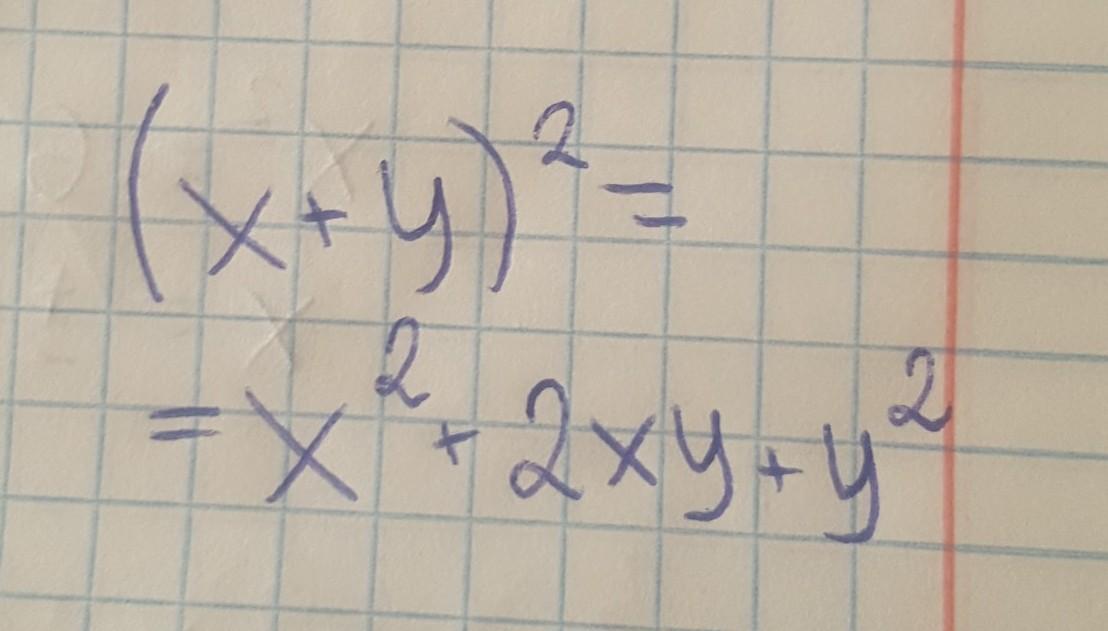 (x+y)²=
=x²+2xy+y²